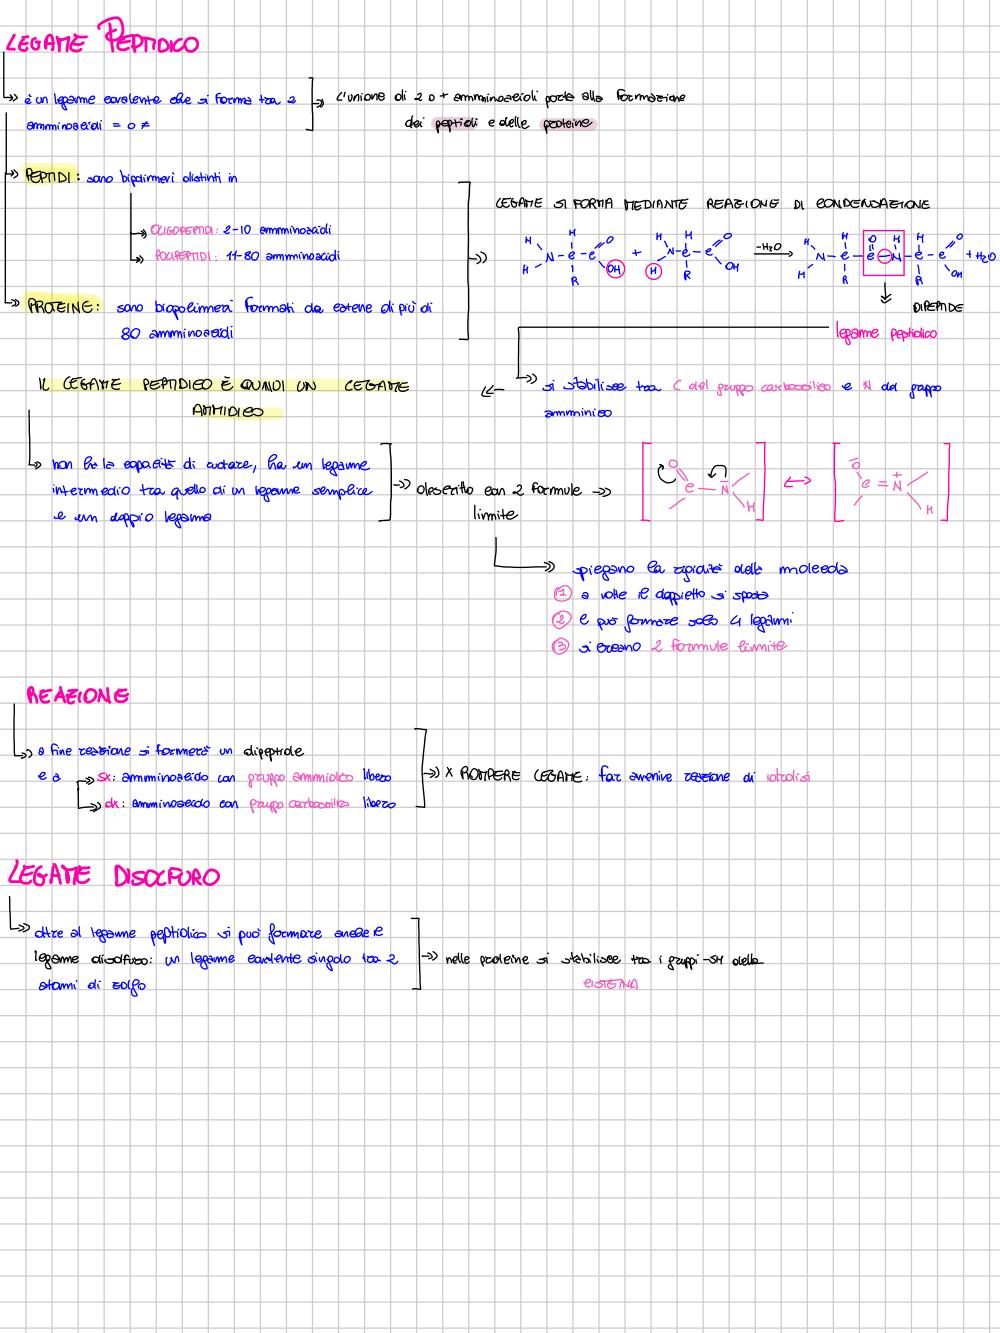 LEGAME PEPTIDICO
è un legame covalente che si forma tra 2
amminoacidi = o ≠
L'unione di 2 o + amminoacidi porta alla formazione
dei peptidi e delle proteine
PEPTIDI: sono bipolimeri distinti in
OLIGOPEPTIDI: 2-10 amminoacidi
POLIPEPTIDI: 11-80 amminoacidi
PROTEINE: sono biopolimeri formati da catene di più di
80 amminoacidi
LEGAME SI FORMA MEDIANTE REAZIONE DI CONDENSAZIONE
H H O H H O -H₂O H H O H H O
N-C-C + N-C-C → N-C-C-N-C-C + H₂O
H R OH H R OH H R R OH
DIPEPTIDE
legame peptidico
si stabilisce tra C del gruppo carbossilico e N del gruppo
amminico
IL LEGAME PEPTIDICO È QUINDI UN LEGAME
AMMIDICO
non ha la capacità di ruotare, ha un legame
intermedio tra quello di un legame semplice
e un doppio legame
descritto con 2 formule
limite
O C - N H ↔ O C = N + H
spiegano la rigidità della molecola
1 a volte il doppietto si sposta
2 C può formare solo 4 legami
3 si creano 2 formule limite
REAZIONE
a fine reazione si formerà un dipeptide
e a sx: amminoacido con gruppo ammidico libero
dx: amminoacido con gruppo carbossilico libero
X ROMPERE LEGAME: far avvenire reazione di idrolisi
LEGAME DISOLFURO
oltre al legame peptidico si può formare anche il
legame disolfuro: un legame covalente singolo tra 2
atomi di zolfo
nelle proteine si stabilisce tra i gruppi -SH della
CISTEINA